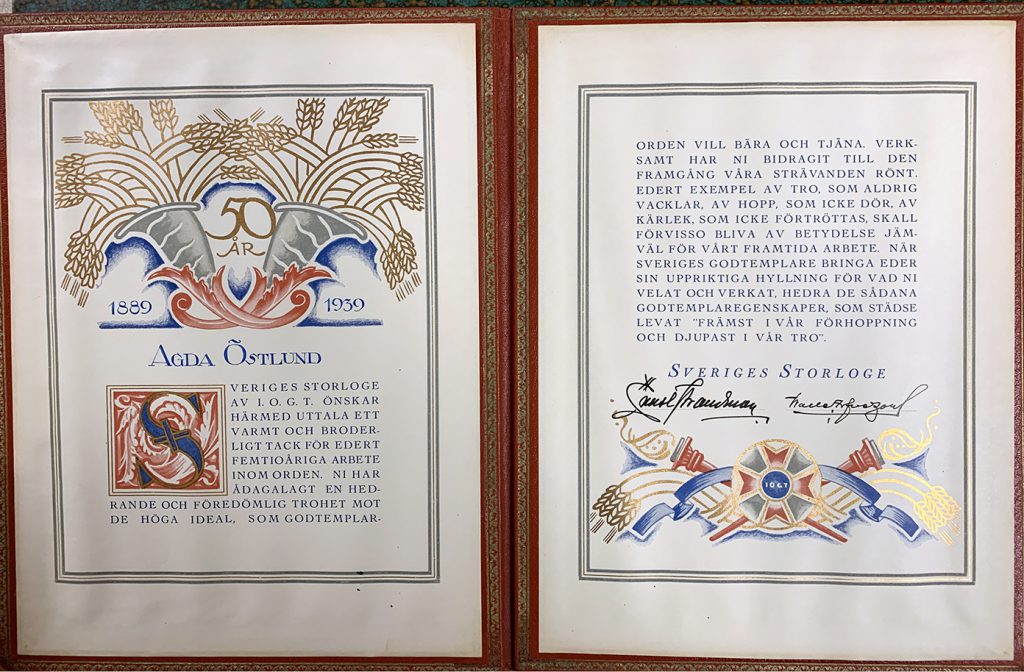 50
ÅR
1889 1939
AGDA ÖSTLUND
SVERIGES STORLOGE
AV I.O.G.T. ÖNSKAR
HÄRMED UTTALA ETT
VARMT OCH BRODER-
LIGT TACK FÖR EDERT
FEMTIOÅRIGA ARBETE
INOM ORDEN. NI HAR
ÅDAGALAGT EN HED-
RANDE OCH FÖREDÖMLIG TROHET MOT
DE HÖGA IDEAL, SOM GODTEMPLAR-
ORDEN VILL BÄRA OCH TJÄNA. VERK-
SAMT HAR NI BIDRAGIT TILL DEN
FRAMGÅNG VÅRA STRÄVANDEN RÖNT.
EDERT EXEMPEL AV TRO, SOM ALDRIG
VACKLAR, AV HOPP, SOM ICKE DÖR, AV
KÄRLEK, SOM ICKE FÖRTRÖTTAS, SKALL
FÖRVISSO BLIVA AV BETYDELSE JÄM-
VÄL FÖR VÅRT FRAMTIDA ARBETE. NÄR
SVERIGES GODTEMPLARE BRINGA EDER
SIN UPPRIKTIGA HYLLNING FÖR VAD NI
VELAT OCH VERKAT, HEDRA DE SÅDANA
GODTEMPLAREGENSKAPER, SOM STÄDSE
LEVAT "FRÄMST I VÅR FÖRHOPPNING
OCH DJUPAST I VÅR TRO".
SVERIGES STORLOGE
IOGT